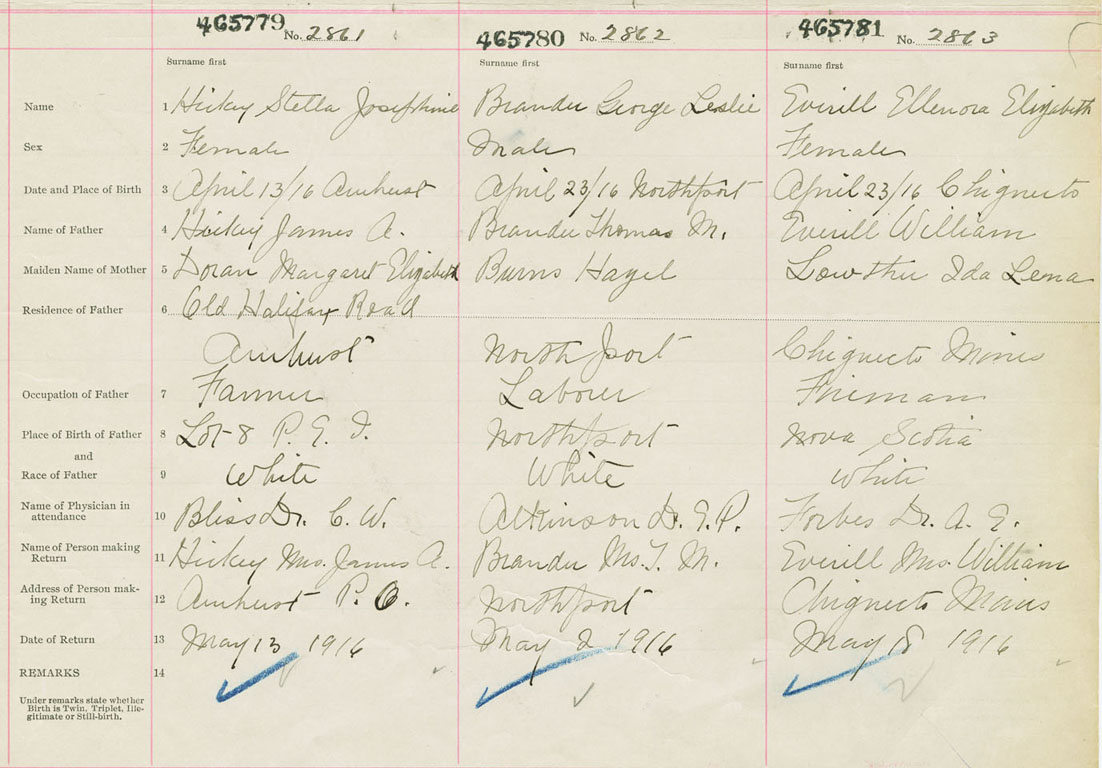 465779 No. 2861 465780 No. 2862 465781 No. 2863
Surname first Surname first Surname first
Name 1 Hickey Stella Josephine Brander George Leslie Everill Ellenora Elizabeth
Sex 2 Female Male Female
Date and Place of Birth 3 April 13/16 Amherst April 23/16 Northport April 23/16 Chignecto
Name of Father 4 Hickey James A. Brander Thomas M. Everill William
Maiden Name of Mother 5 Doran Margaret Elizabeth Burns Hazel Lowther Ida Lena
Residence of Father 6 Old Halifax Road
Amherst Northport Chignecto Mines
Occupation of Father 7 Farmer Laborer Fireman
Place of Birth of Father 8 Lot 8 P. E. I. Northport Nova Scotia
and
Race of Father 9 White White White
Name of Physician in
attendance 10 Bliss Dr. C. W. Atkinson Dr. E. P. Forbes Dr. A. E.
Name of Person making
Return 11 Hickey Mrs. James A. Brander Mrs. T. M. Everill Mrs. William
Address of Person mak-
ing Return 12 Amherst P. O. Northport Chignecto Mines
Date of Return 13 May 13 1916 May 2 1916 May 8 1916
REMARKS 14
Under remarks state whether
Birth is Twin, Triplet, Ille-
gitimate or Still-birth.